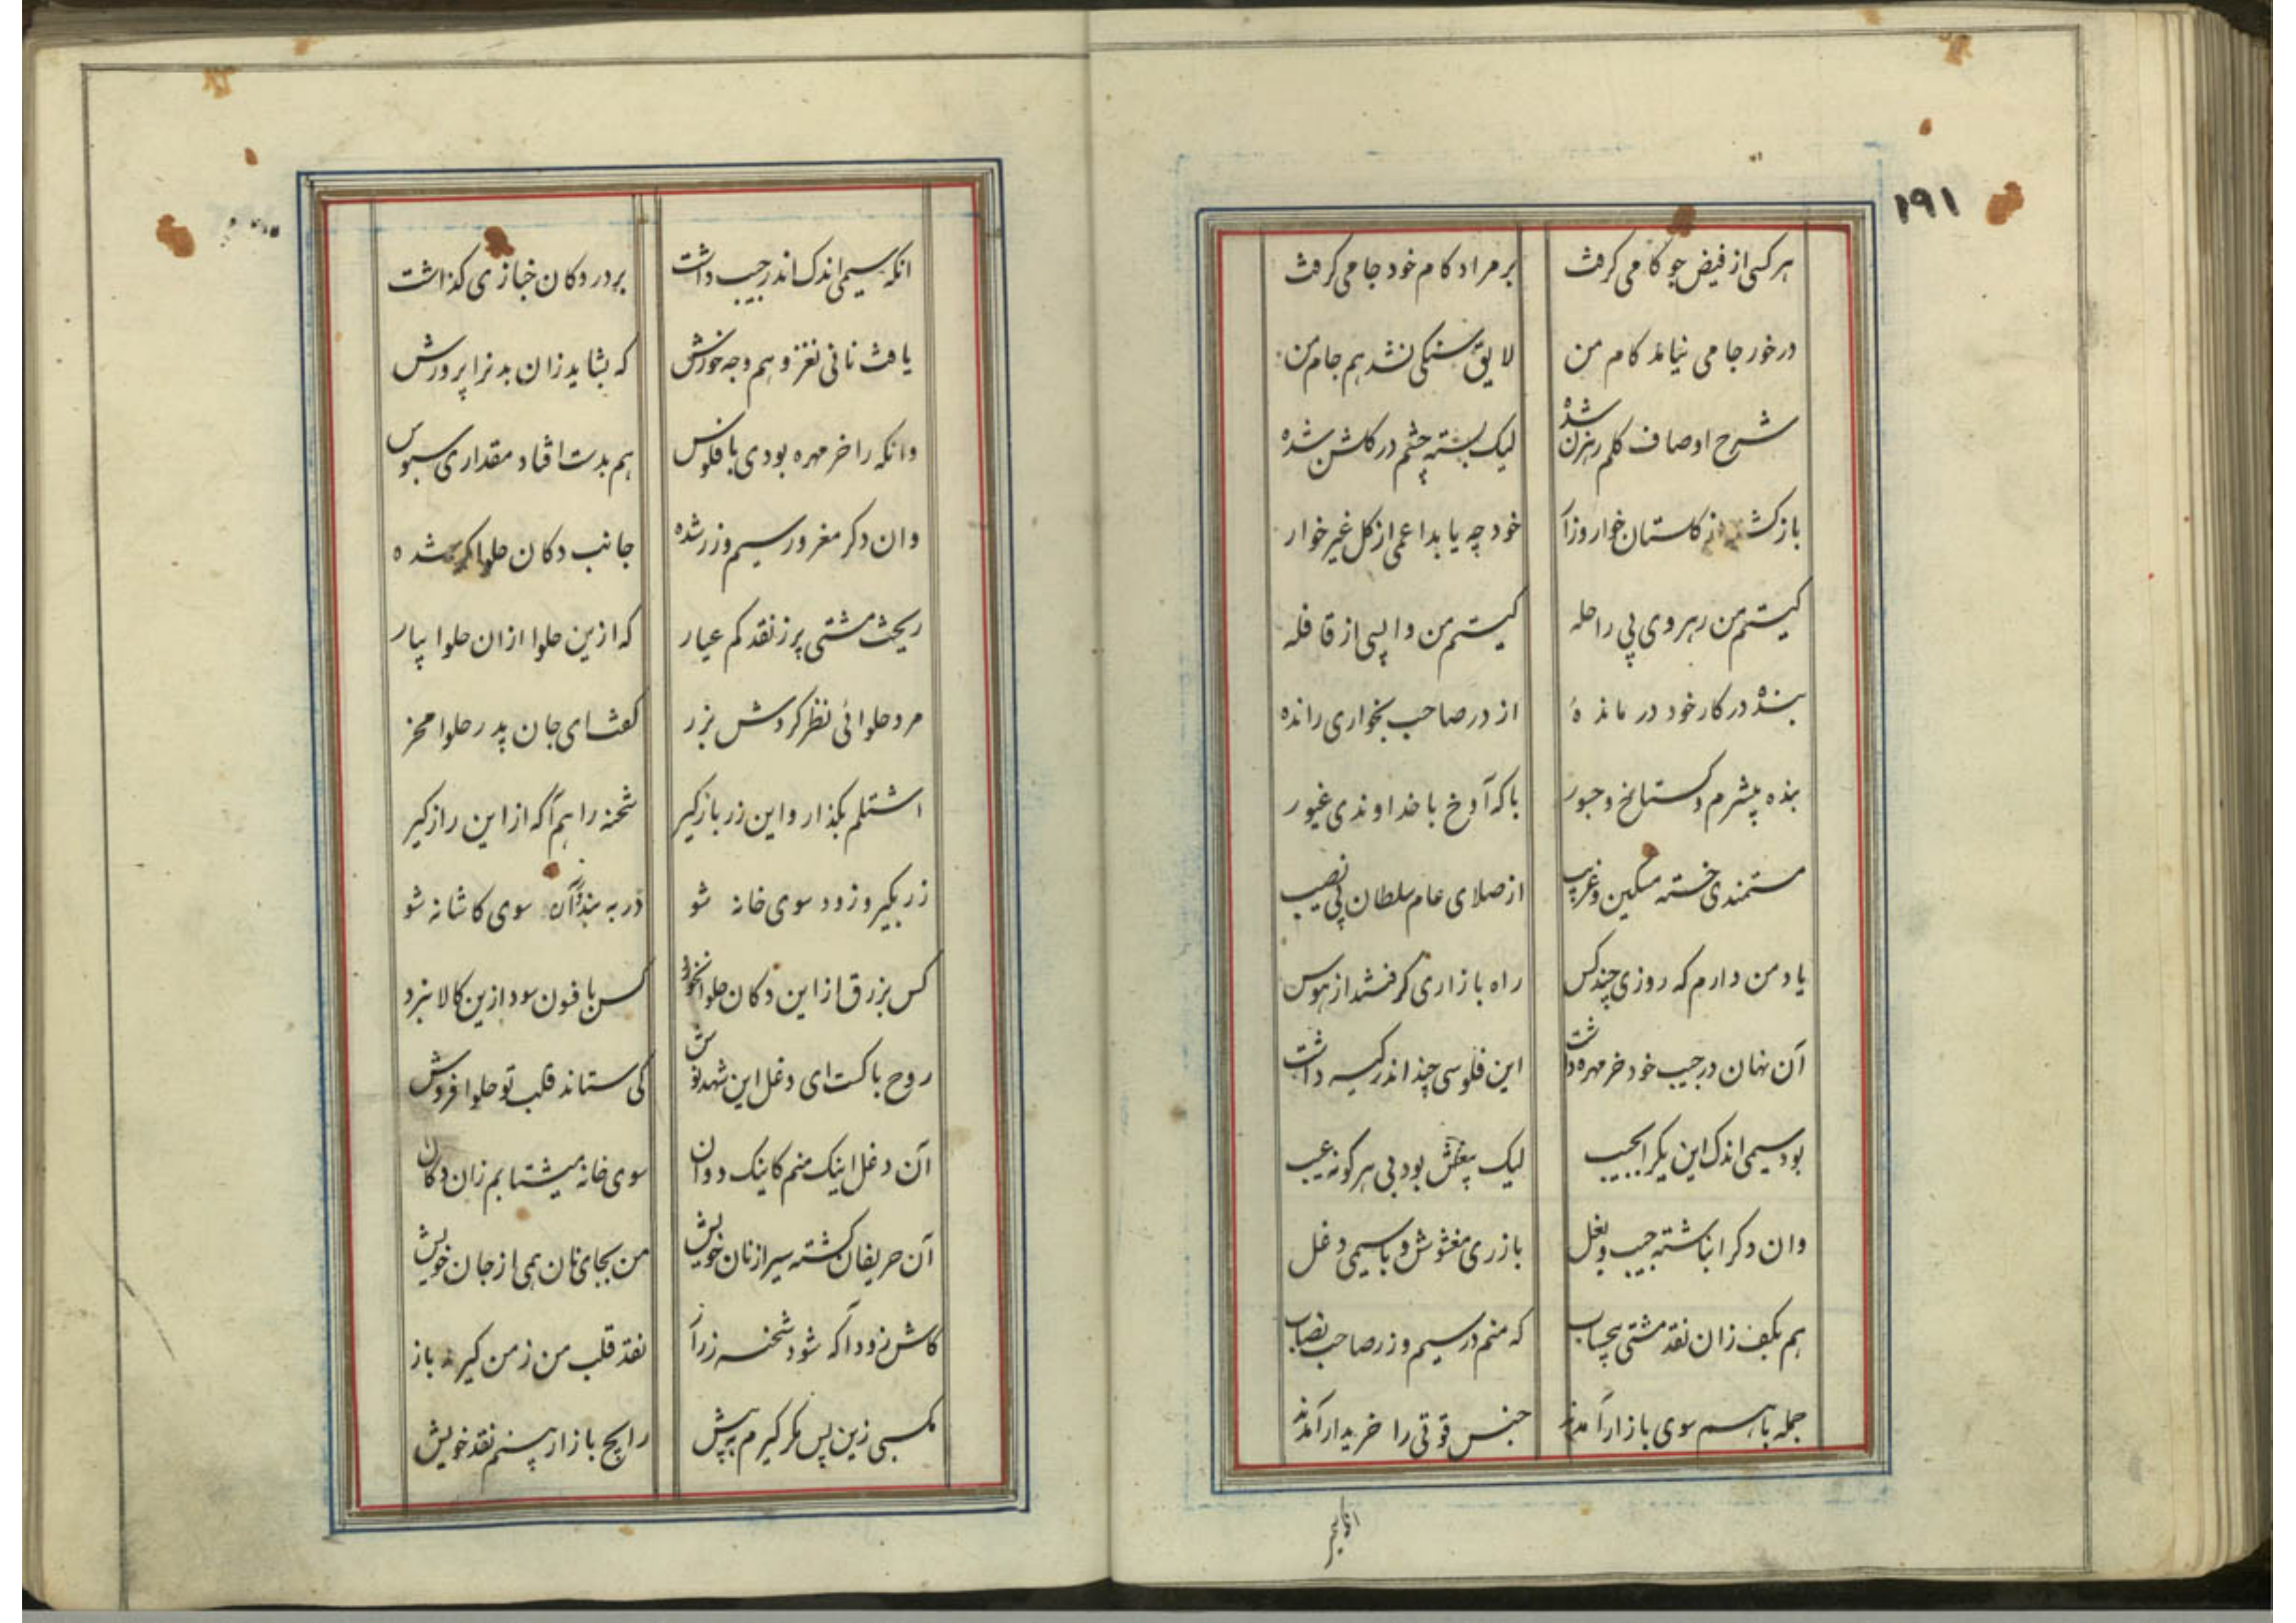 ۱۹۱
هر کسی از فیض جو کامی کرفت بر مراد کام خود جامی کرفت
در خور جامی نیامد کام من لایق سنکی نشد هم جام من
شرح اوصاف کلم رهزن شده لیک بسته چشم در کلشن شده
باز کشته از کلستان خوار و زار خود چه یابد اعمی از کل غیر خوار
کیستم من رهروی بی راحله کیستم من واپسی از قافله
بندهٔ در کار خود درماندهٔ از در صاحب بخواری رانده
بنده بیشرم و کستاخ و جسور با که آوخ با خداوندی غیور
مستمندی خسته مسکین و غریب از صلای عام سلطان بی نصیب
یاد من دارم که روزی چند کس راه بازاری کرفتند از هوس
آن نهان در جیب خود خر مهره داشت این فلوسی چند اندر کیسه داشت
بود سیمی اندک این یکرا بجیب لیک بیغش بود بی هر کونه عیب
وان دکر انباشته جیب و بغل با زری مغشوش و با سیمی دغل
هم بکف زان نقد مشتی بیحساب که منم در سیم و زر صاحب نصاب
جمله با هم سوی بازار آمدند جنس قوتی را خریدار آمدند
انکه سیمی اندک اندر جیب داشت بر در دکان خبازی کذاشت
یافت نانی نغز و هم وجه خورش که بشاید زان بدنرا پرورش
وانکه را خر مهره بودی با فلوس هم بدست افتاد مقداری سبوس
وان دکر مغرور سیم و زر شده جانب دکان حلواکر شده
ریخت مشتی پر ز نقد کم عیار که ازین حلوا ازان حلوا بیار
مرد حلوائی نظر کردش بزر کفت ای جان پدر حلوا مخر
اشتلم بکذار و این زر بازکیر شحنه را هم آکه از این راز کیر
زر بکیر و زود سوی خانه شو در به بند و آن سوی کاشانه شو
کس بزرق از این دکان حلوا نخورد کس بافسون سود ازین کالا نبرد
روح پاکست ای دغل این شهد نوش کی ستاند قلب تو حلوا فروش
آن دغل اینک منم کاینک دوان سوی خانه میشتابم زان دکان
آن حریفان کشته سیر از نان خویش من بجای نان همی از جان خویش
کاش زود آکه شود شحنه ز راز نقد قلب من ز من کیرد باز
کسبی زین پس مکر کیرم به پیش رایج بازار بینم نقد خویش